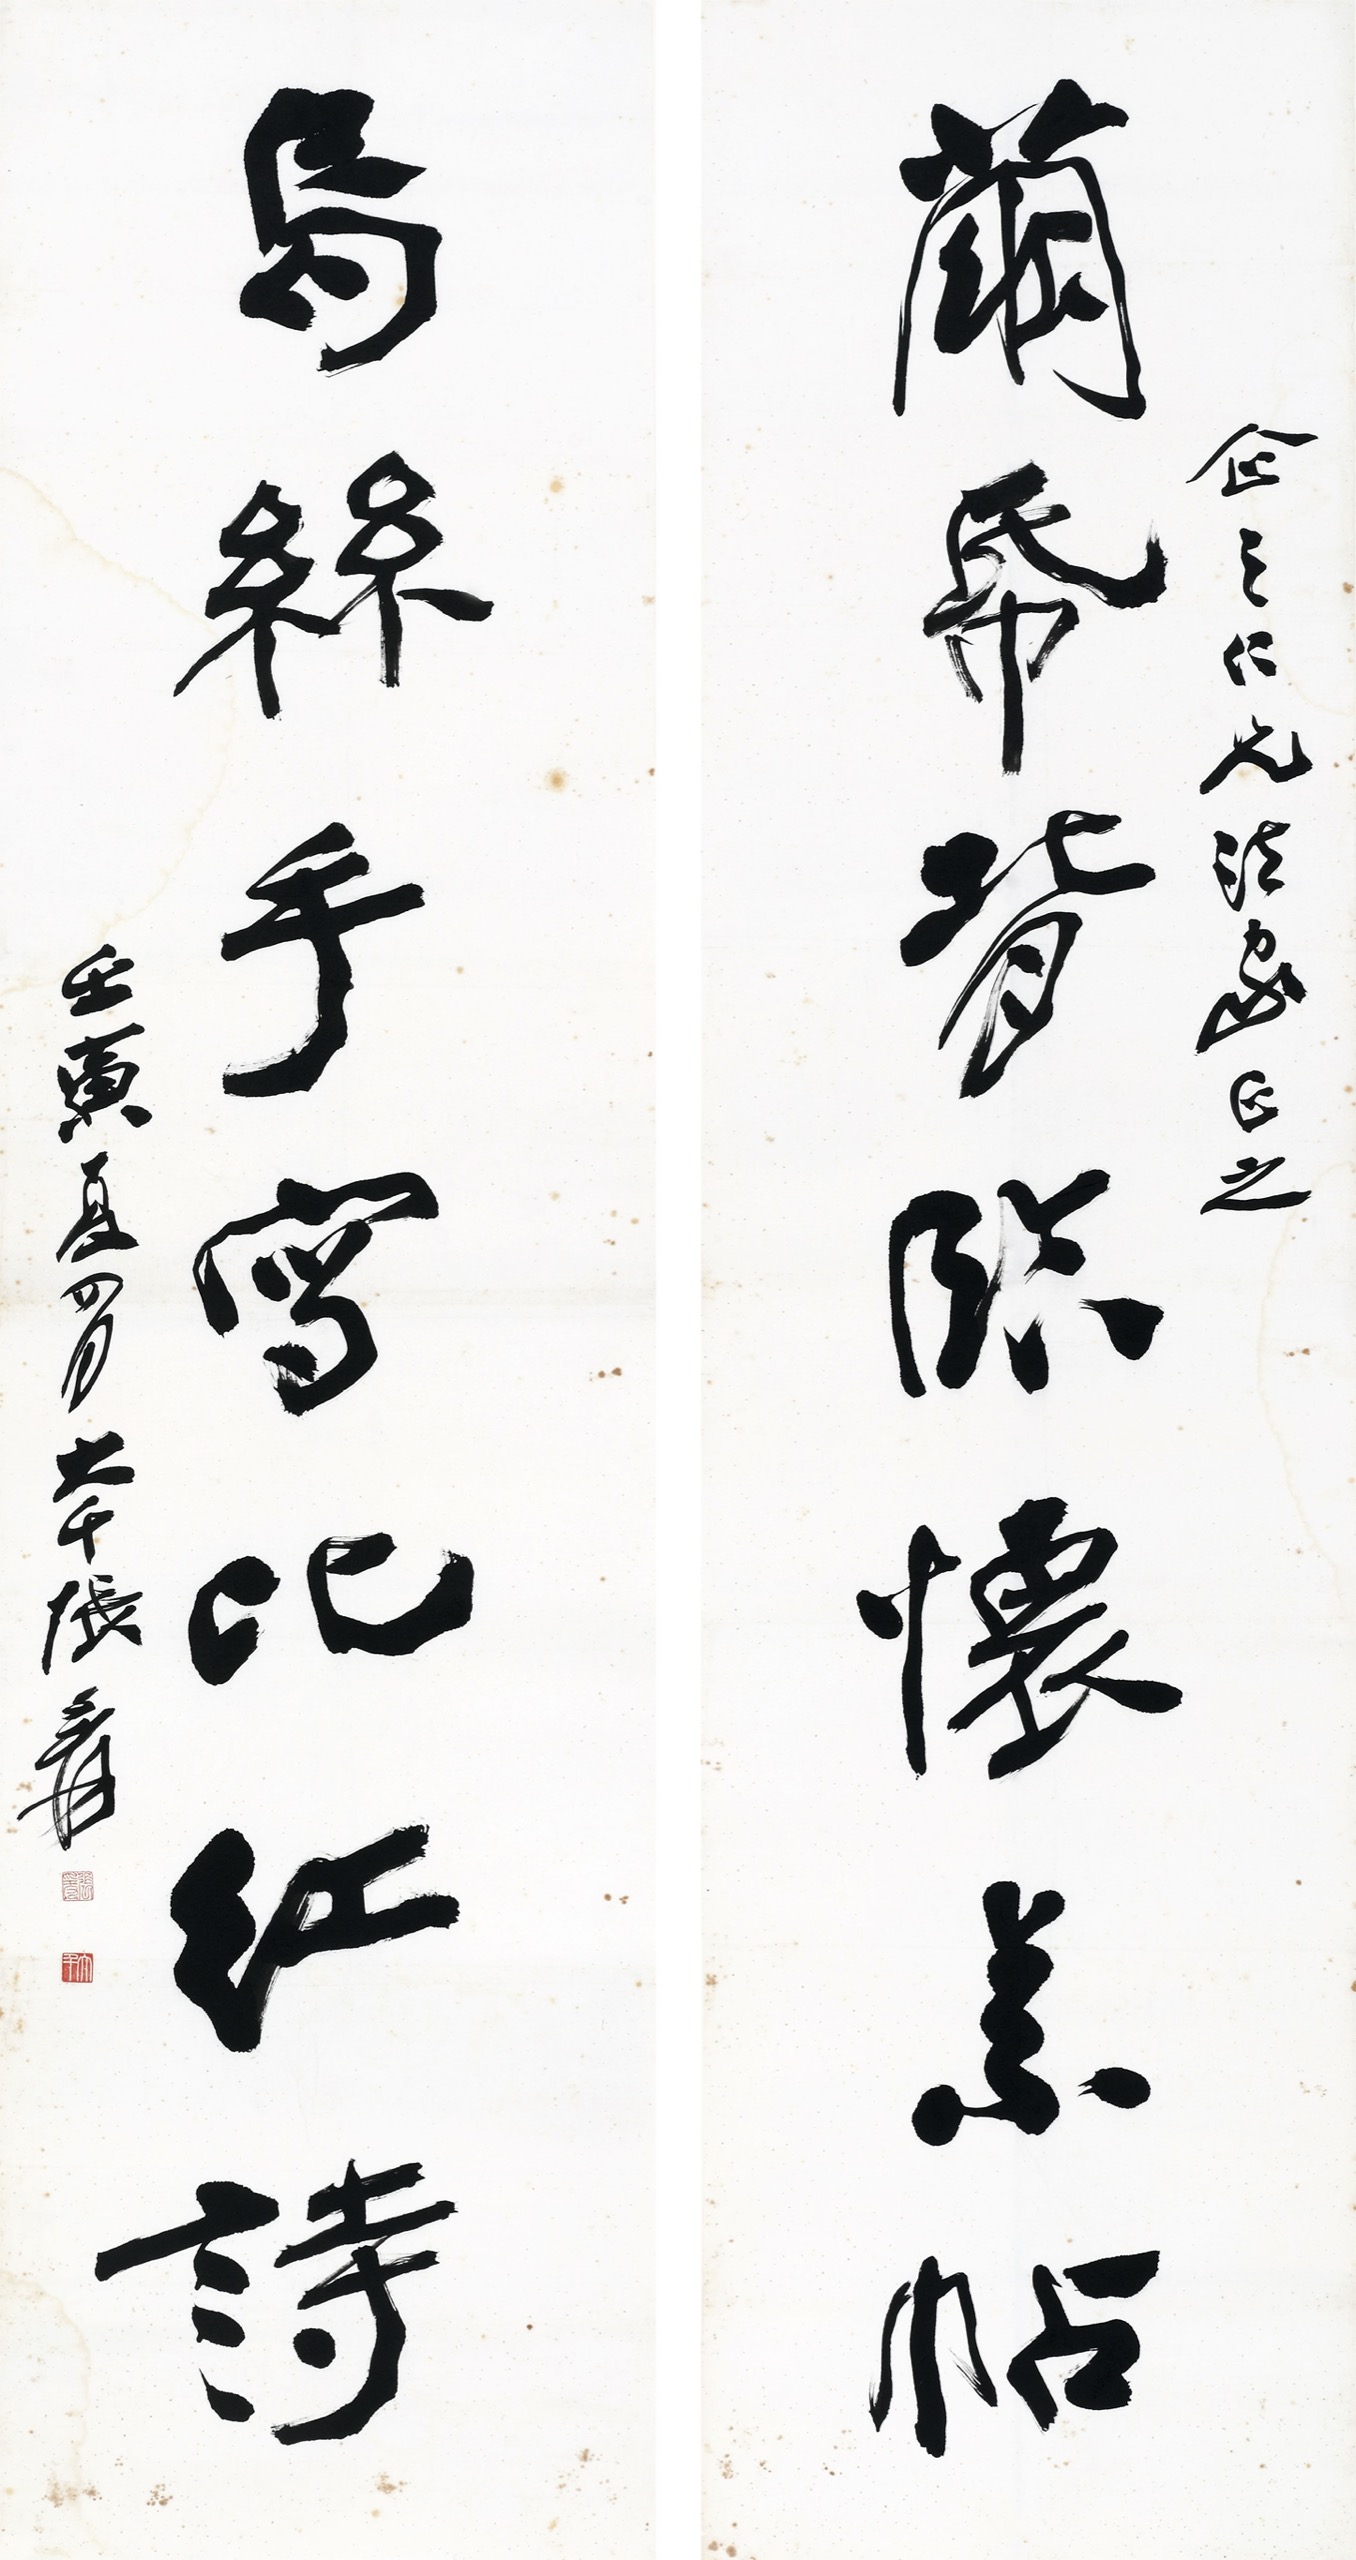 企之仁兄法家正之
繭帋背臨懷素帖
烏絲手寫比紅詩
壬寅夏四月大千張爰
大千